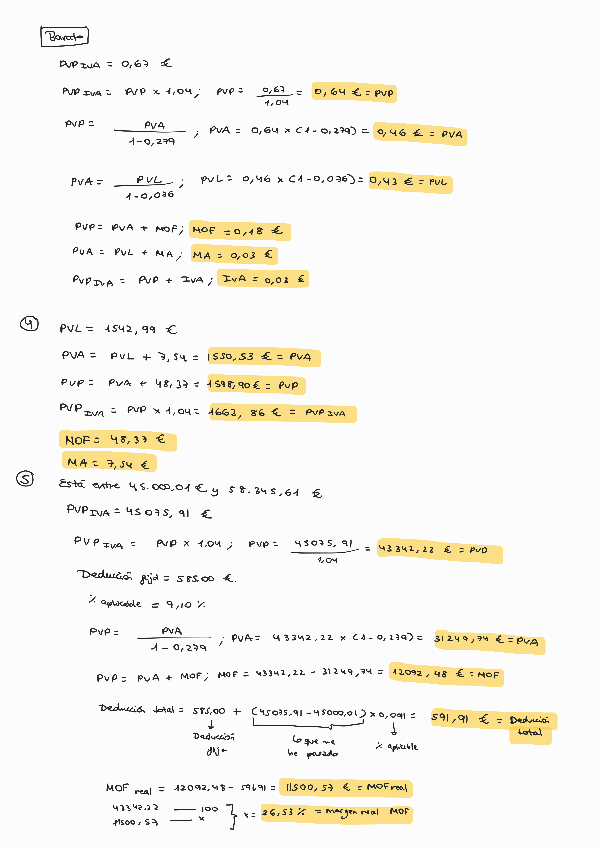 Barato
PVP IVA = 0,67 €
PVP IVA = PVP x 1,04; PVP = 0,67 / 1,04 = 0,64 € = PVP
PVP = PVA / 1-0,279 ; PVA = 0,64 x (1-0,279) = 0,46 € = PVA
PVA = PVL / 1-0,076 ; PVL = 0,46 x (1-0,076) = 0,43 € = PVL
PVP = PVA + MOF; MOF = 0,18 €
PVA = PVL + MA; MA = 0,03 €
PVP IVA = PVP + IVA; IVA = 0,03 €
4
PVL = 1542,99 €
PVA = PVL + 7,54 = 1550,53 € = PVA
PVP = PVA + 48,37 = 1598,90 € = PVP
PVP IVA = PVP x 1,04 = 1662,86 € = PVP IVA
MOF = 48,37 €
MA = 7,54 €
5
Está entre 45.000,01 € y 58.345,61 €
PVP IVA = 45075,91 €
PVP IVA = PVP x 1.04 ; PVP = 45075,91 / 1,04 = 43342,22 € = PVP
Deducción fija = 585.00 €.
% aplicable = 9,10 %
PVP = PVA / 1-0,279 ; PVA = 43342,22 x (1-0,279) = 31249,74 € = PVA
PVP = PVA + MOF; MOF = 43342,22 - 31249,74 = 12092,48 € = MOF
Deducción total = 585,00 + (45075,91-45000,01) x 0,091 = 591,91 € = Deducción total
Deducción fija
Lo que me he pasado
% aplicable
MOF real = 12092,48 - 591,91 = 11500,57 € = MOF real
43342.22 — 100
11500,57 — x
x = 26,53 % = margen real MOF